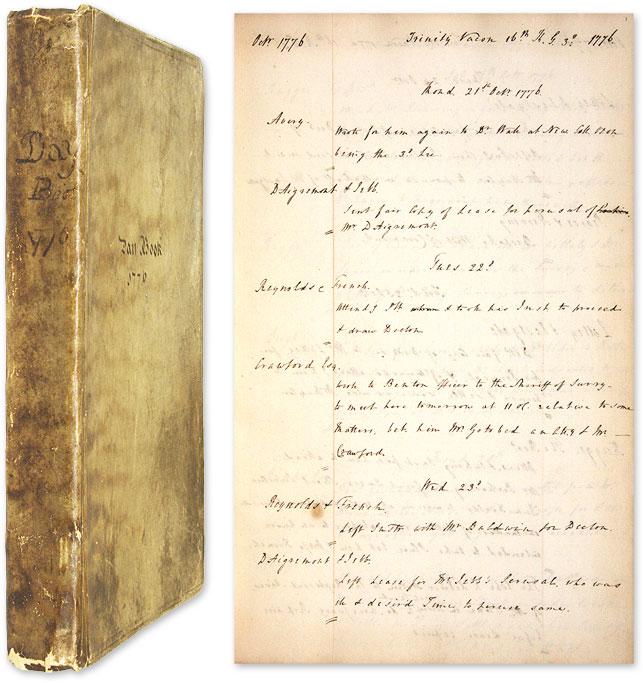 Day
Book
1776
Day Book
1776
Octr. 1776 Trinity Vacon 16th K. G. 3d. 1776
Mond. 21st. Octr. 1776.
Avery.
Wrote for him again to Dr. at New Coll. Oxon
being the 3d.
D'Aigremont & Jebb.
Sent fair Copy of Lease for perusal of
Mr. D'Aigremont.
Tues 22d.
Reynolds & French.
Attendg Plt & took his Instr to proceed
& draw Declon
Crawford Esq.
Wrote to Benton Officer to the Sheriff of Surry
to meet here tomorrow at 11 oC. relative to some
Matters, betw him Mr. Gotobed an Atty & Mr
Crawford.
Wed. 23d.
Reynolds & French.
Left Instr. with Mr. Baldwin for Declon.
D'Aigremont & Jebb.
Left Lease for Mr. Jebb's Perusal, who was
& desired Time to peruse same.